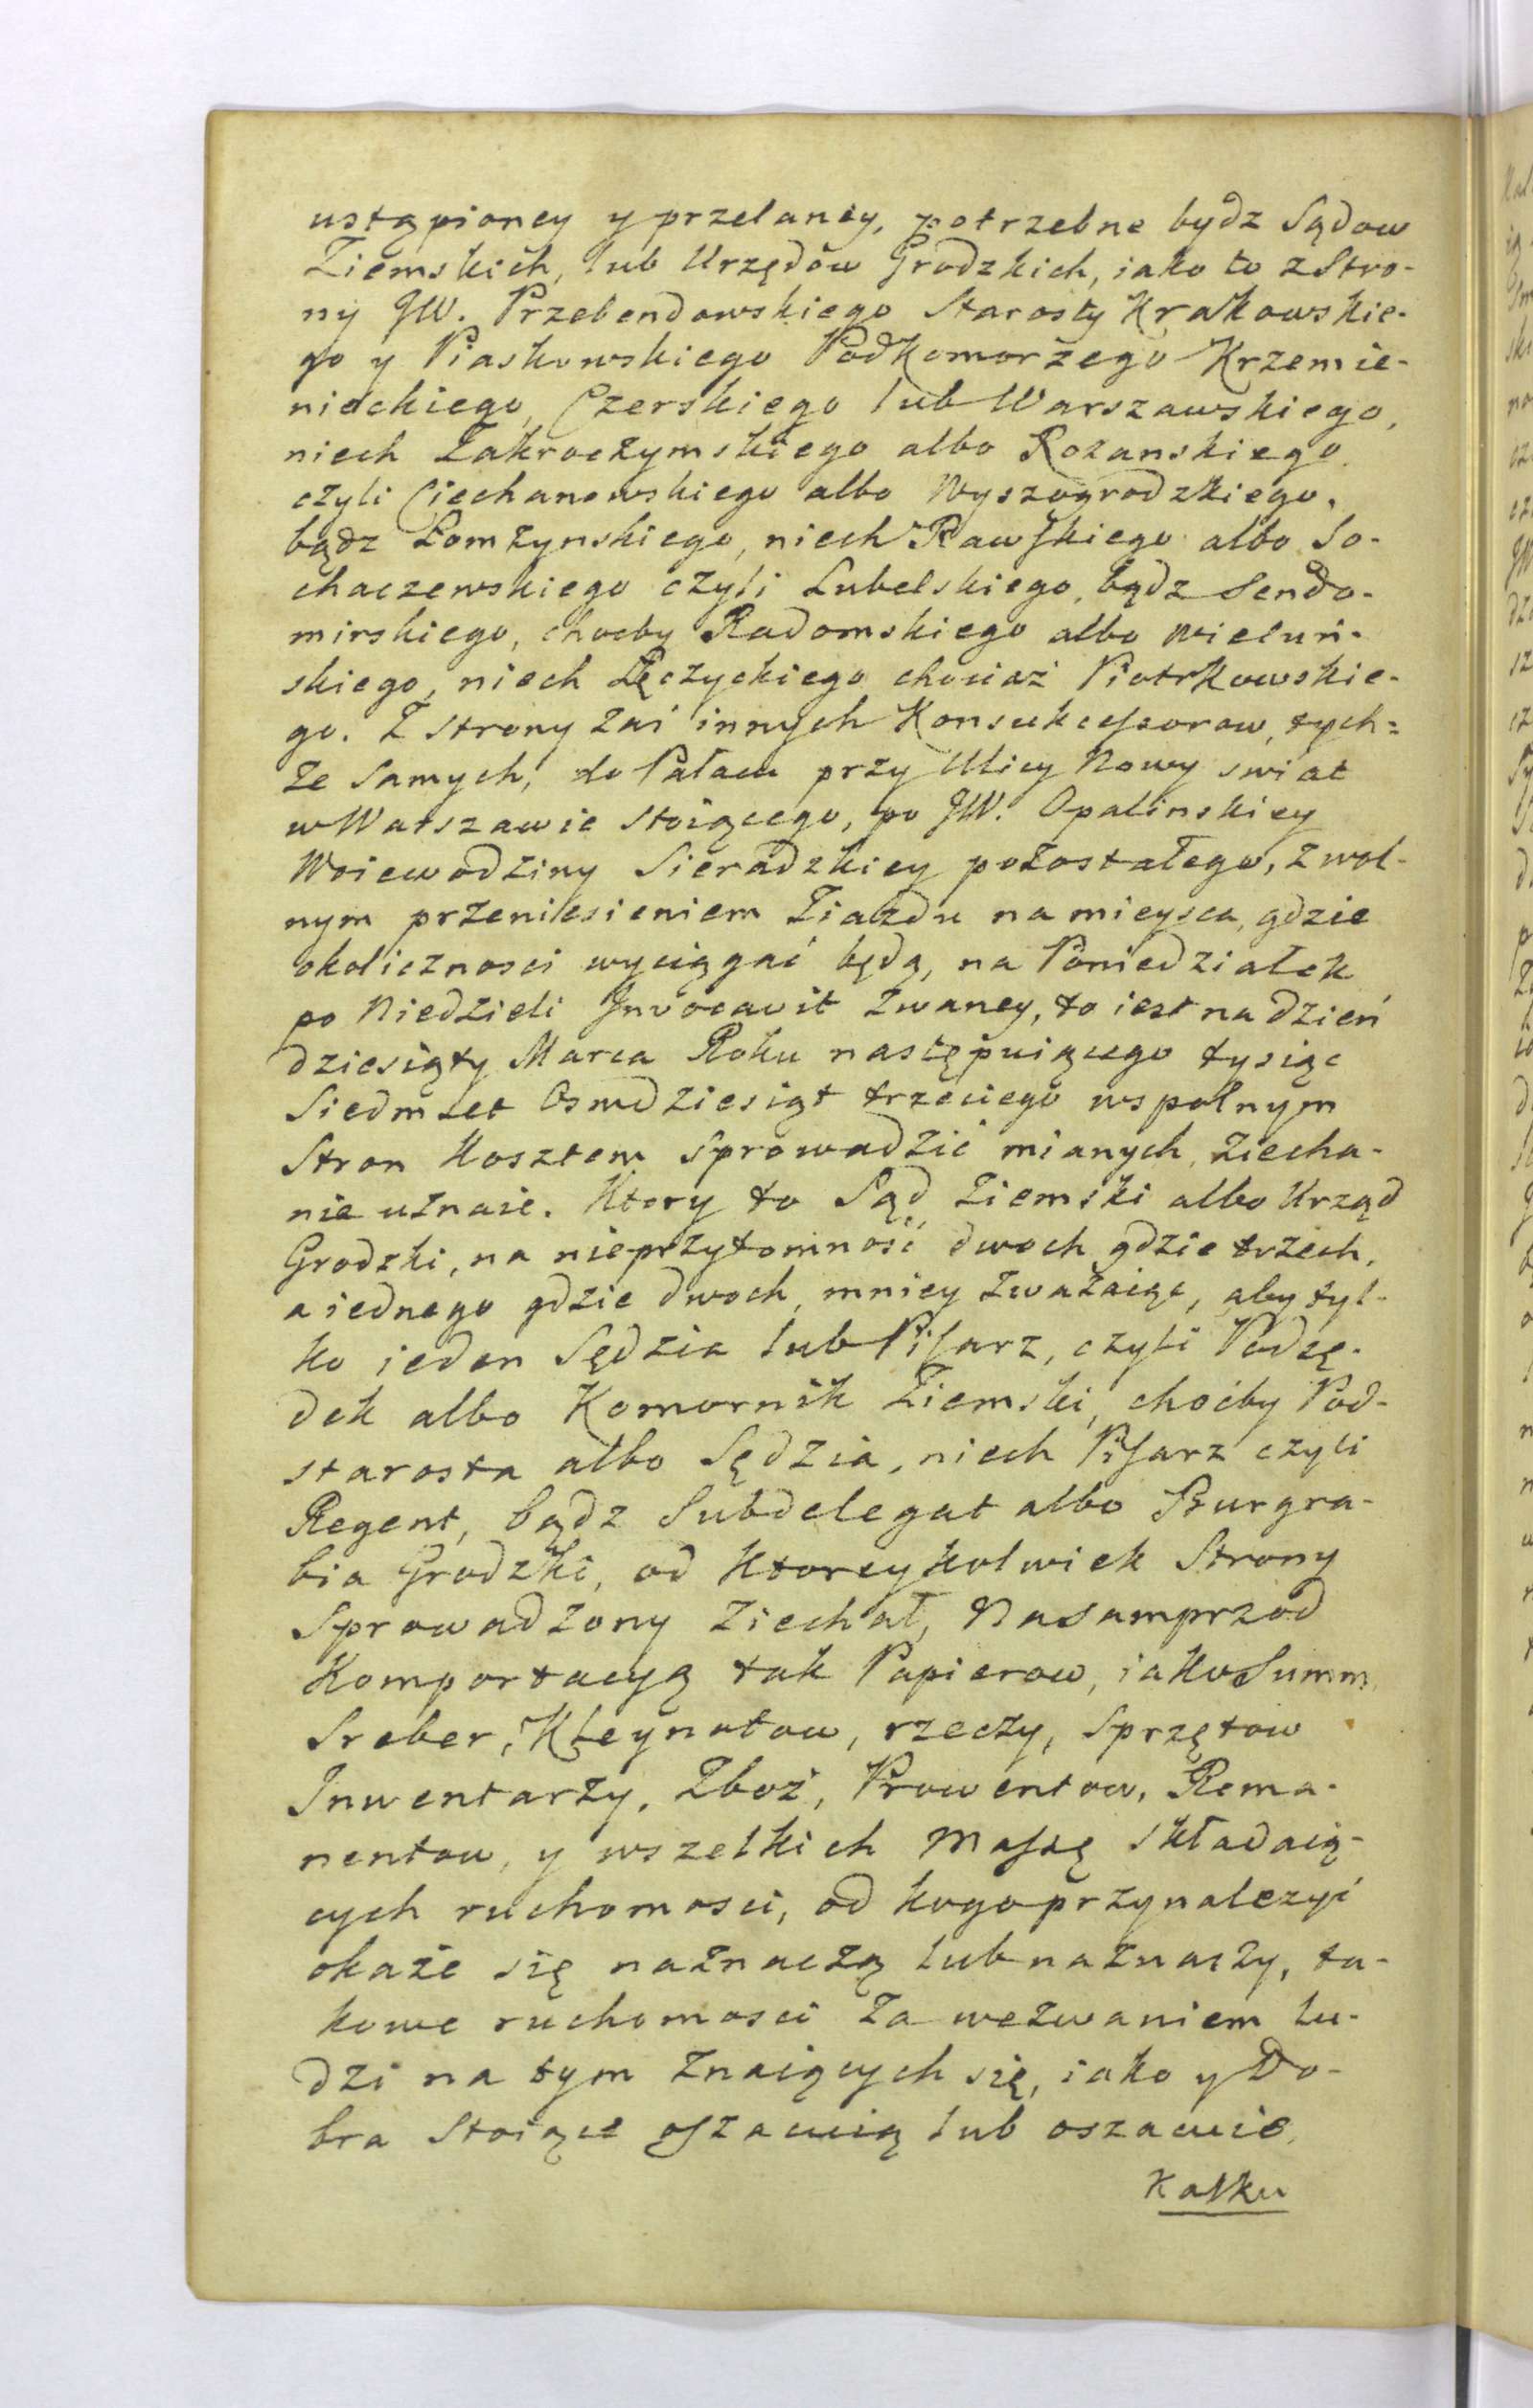 ustąpioney y przelaney, potrzebne bydz Sądow
Ziemskich, lub Urzędów Grodzkich, iako to z Stro-
ny JW. Przebendowskiego Starosty Krakowskie-
go y Piaskowskiego Podkomorzego Krzemie-
nieckiego, Czerskiego lub Warszawskiego,
niech Zakroczymskiego albo Rozanskiego
czyli Ciechanowskiego albo Wyszogrodzkiego,
bądz Łomżynskiego, niech Rawskiego albo So-
chaczewskiego czyli Lubelskiego, bądz Sendo-
mirskiego, choćby Radomskiego albo Wieluń-
skiego, niech Łęczyckiego chociaż Piotrkowskie-
go. Z Strony zaś innych Konsukcessorow, tych=
że Samych, do Pałacu przy Ulicy Nowy Swiat
w Warszawie stoiącego, po JW. Opalinskiey
Woiewodziny Sieradzkiey pozostałego, z wol-
nym przeniesieniem Ziazdu na mieysca, gdzie
okolicznosci wyciągać będą, na Poniedziałek
po Niedzieli Invocavit zwaney, to iest na dzień
dziesiąty Marca Roku następuiącego tysiąc
Siedmset Osmdziesiąt trzeciego wspolnym
Stron Kosztem sprowadzić mianych, ziecha-
nie uznaie. Ktory to Sąd Ziemski albo Urząd
Grodzki, na nieprzytomność dwoch gdzie trzech,
a iednego gdzie dwoch, mniey zważaiąc, aby tyl-
ko ieden Sędzia lub Pisarz, czyli Podsę-
dek albo Komornik Ziemski, choćby Pod-
starosta albo Sędzia, niech Pisarz czyli
Regent, bądz Subdelegat albo Burgra-
bia Grodzki, od Ktoreykolwiek Strony
Sprowadzony ziechał, Nasamprzod
Komportacyą tak Papierow, iako Summ,
Sreber, Kleynotow, rzeczy, Sprzętow
Inwentarzy, Zboż, Prowentow, Rema-
nentow, y wszelkich Massę składaią-
cych ruchomosci, od kogo przynalezyć
okaże się naznaczą lub naznaczy, ta-
kowe ruchomosci za wezwaniem lu-
dzi na tym znaiących się, iako y Do-
bra Stoiące oszacuią lub oszacuie,
Kalku